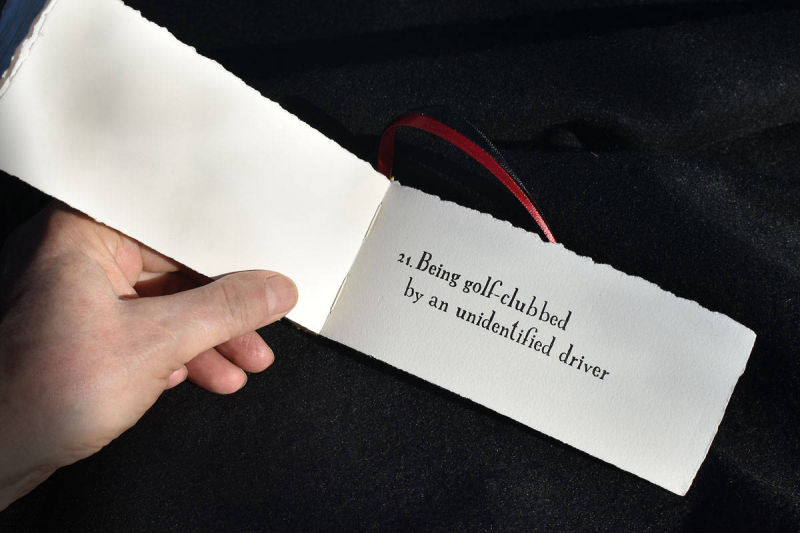 21. Being golf-clubbed
by an unidentified driver